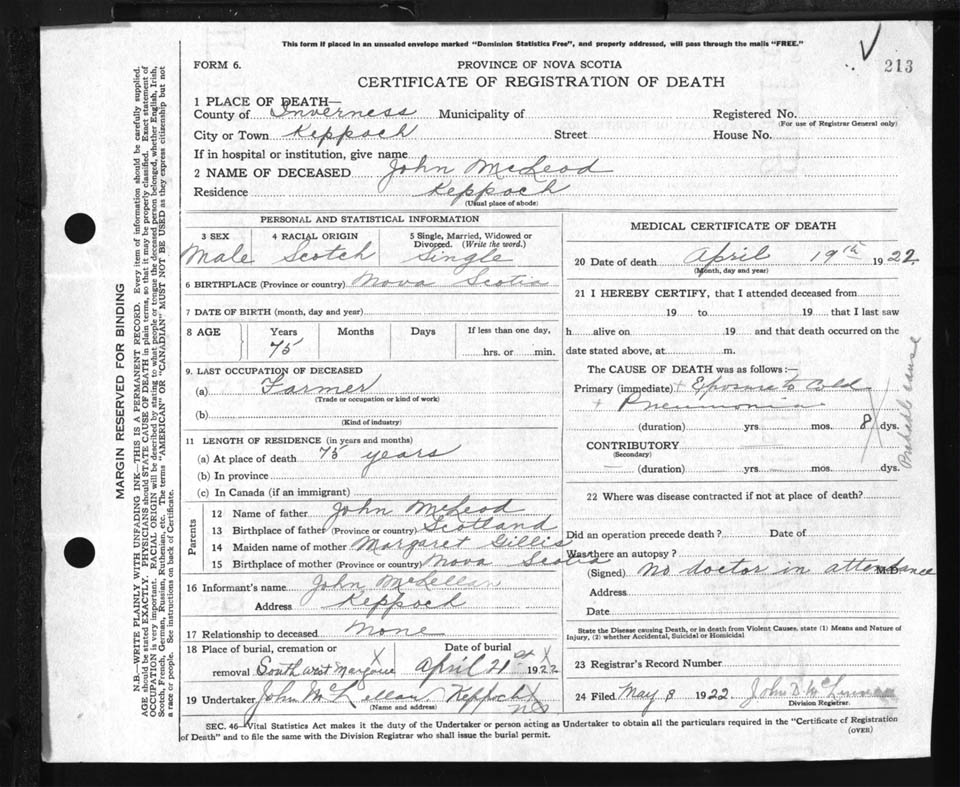 This form if placed in an unsealed envelope marked "Dominion Statistics Free", and properly addressed, will pass through the mails "FREE."
213
FORM 6.
PROVINCE OF NOVA SCOTIA
CERTIFICATE OF REGISTRATION OF DEATH
1 PLACE OF DEATH—
County of Inverness Municipality of Registered No.
(For use of Registrar General only)
City or Town Keppoch Street House No.
If in hospital or institution, give name
2 NAME OF DECEASED John McLeod
Residence Keppoch
(Usual place of abode)
PERSONAL AND STATISTICAL INFORMATION
3 SEX 4 RACIAL ORIGIN 5 Single, Married, Widowed or Divorced. (Write the word.)
Male Scotch Single
6 BIRTHPLACE (Province or country) Nova Scotia
7 DATE OF BIRTH (month, day and year)
8 AGE Years Months Days If less than one day,
75 hrs. or min.
9. LAST OCCUPATION OF DECEASED
(a) Farmer
(Trade or occupation or kind of work)
(b)
(Kind of industry)
11 LENGTH OF RESIDENCE (in years and months)
(a) At place of death 75 years
(b) In province
(c) In Canada (if an immigrant)
Parents
12 Name of father John McLeod
13 Birthplace of father (Province or country) Scotland
14 Maiden name of mother Margaret Gillis
15 Birthplace of mother (Province or country) Nova Scotia
16 Informant's name John McLellan
Address Keppoch
17 Relationship to deceased None
18 Place of burial, cremation or removal Date of burial
South West Margaree April 21st 1922
19 Undertaker John McLellan Keppoch NS
(Name and address)
MEDICAL CERTIFICATE OF DEATH
20 Date of death April 19th 1922
(Month, day and year)
21 I HEREBY CERTIFY, that I attended deceased from
19 to 19 that I last saw
h alive on 19 and that death occurred on
date stated above, at m.
The CAUSE OF DEATH was as follows:—
Primary (immediate) + Exposure to Cold
+ Pneumonia
(duration) yrs. mos. 8 dys.
Probable cause
CONTRIBUTORY
(Secondary)
— (duration) yrs. mos. dys.
22 Where was disease contracted if not at place of death?
Did an operation precede death? Date of
Was there an autopsy?
(Signed) No doctor in attendance M.D.
Address
Date
State the Disease causing Death, or in death from Violent Causes, state (1) Means and Nature of
Injury, (2) whether Accidental, Suicidal or Homicidal
23 Registrar's Record Number
24 Filed May 8 1922 John D.
Division Registrar.
SEC. 46—Vital Statistics Act makes it the duty of the Undertaker or person acting as Undertaker to obtain all the particulars required in the "Certificate of Registration
of Death" and to file the same with the Division Registrar who shall issue the burial permit.
(OVER)
MARGIN RESERVED FOR BINDING
N.B.—WRITE PLAINLY WITH UNFADING INK—THIS IS A PERMANENT RECORD. Every item of information should be carefully supplied.
AGE should be stated EXACTLY. PHYSICIANS should STATE CAUSE OF DEATH in plain terms, so that it may be properly classified. Exact statement of
OCCUPATION is very important. RACIAL ORIGIN will be described by stating to what people or tongue the deceased person belonged, whether English, Irish,
Scotch, French, German, Russian, Ruthenian, etc. The terms "AMERICAN" or "CANADIAN" MUST NOT BE USED as they express citizenship but not
a race or people. See instructions on back of Certificate.